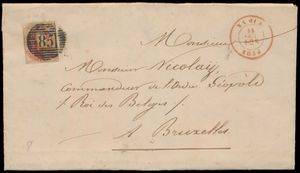 85
NAMUR
Monsieur
Monsieur Nicolaÿ,
Commandeur de l'ordre Léopold
du Roi des Belges /.
A Bruxelles